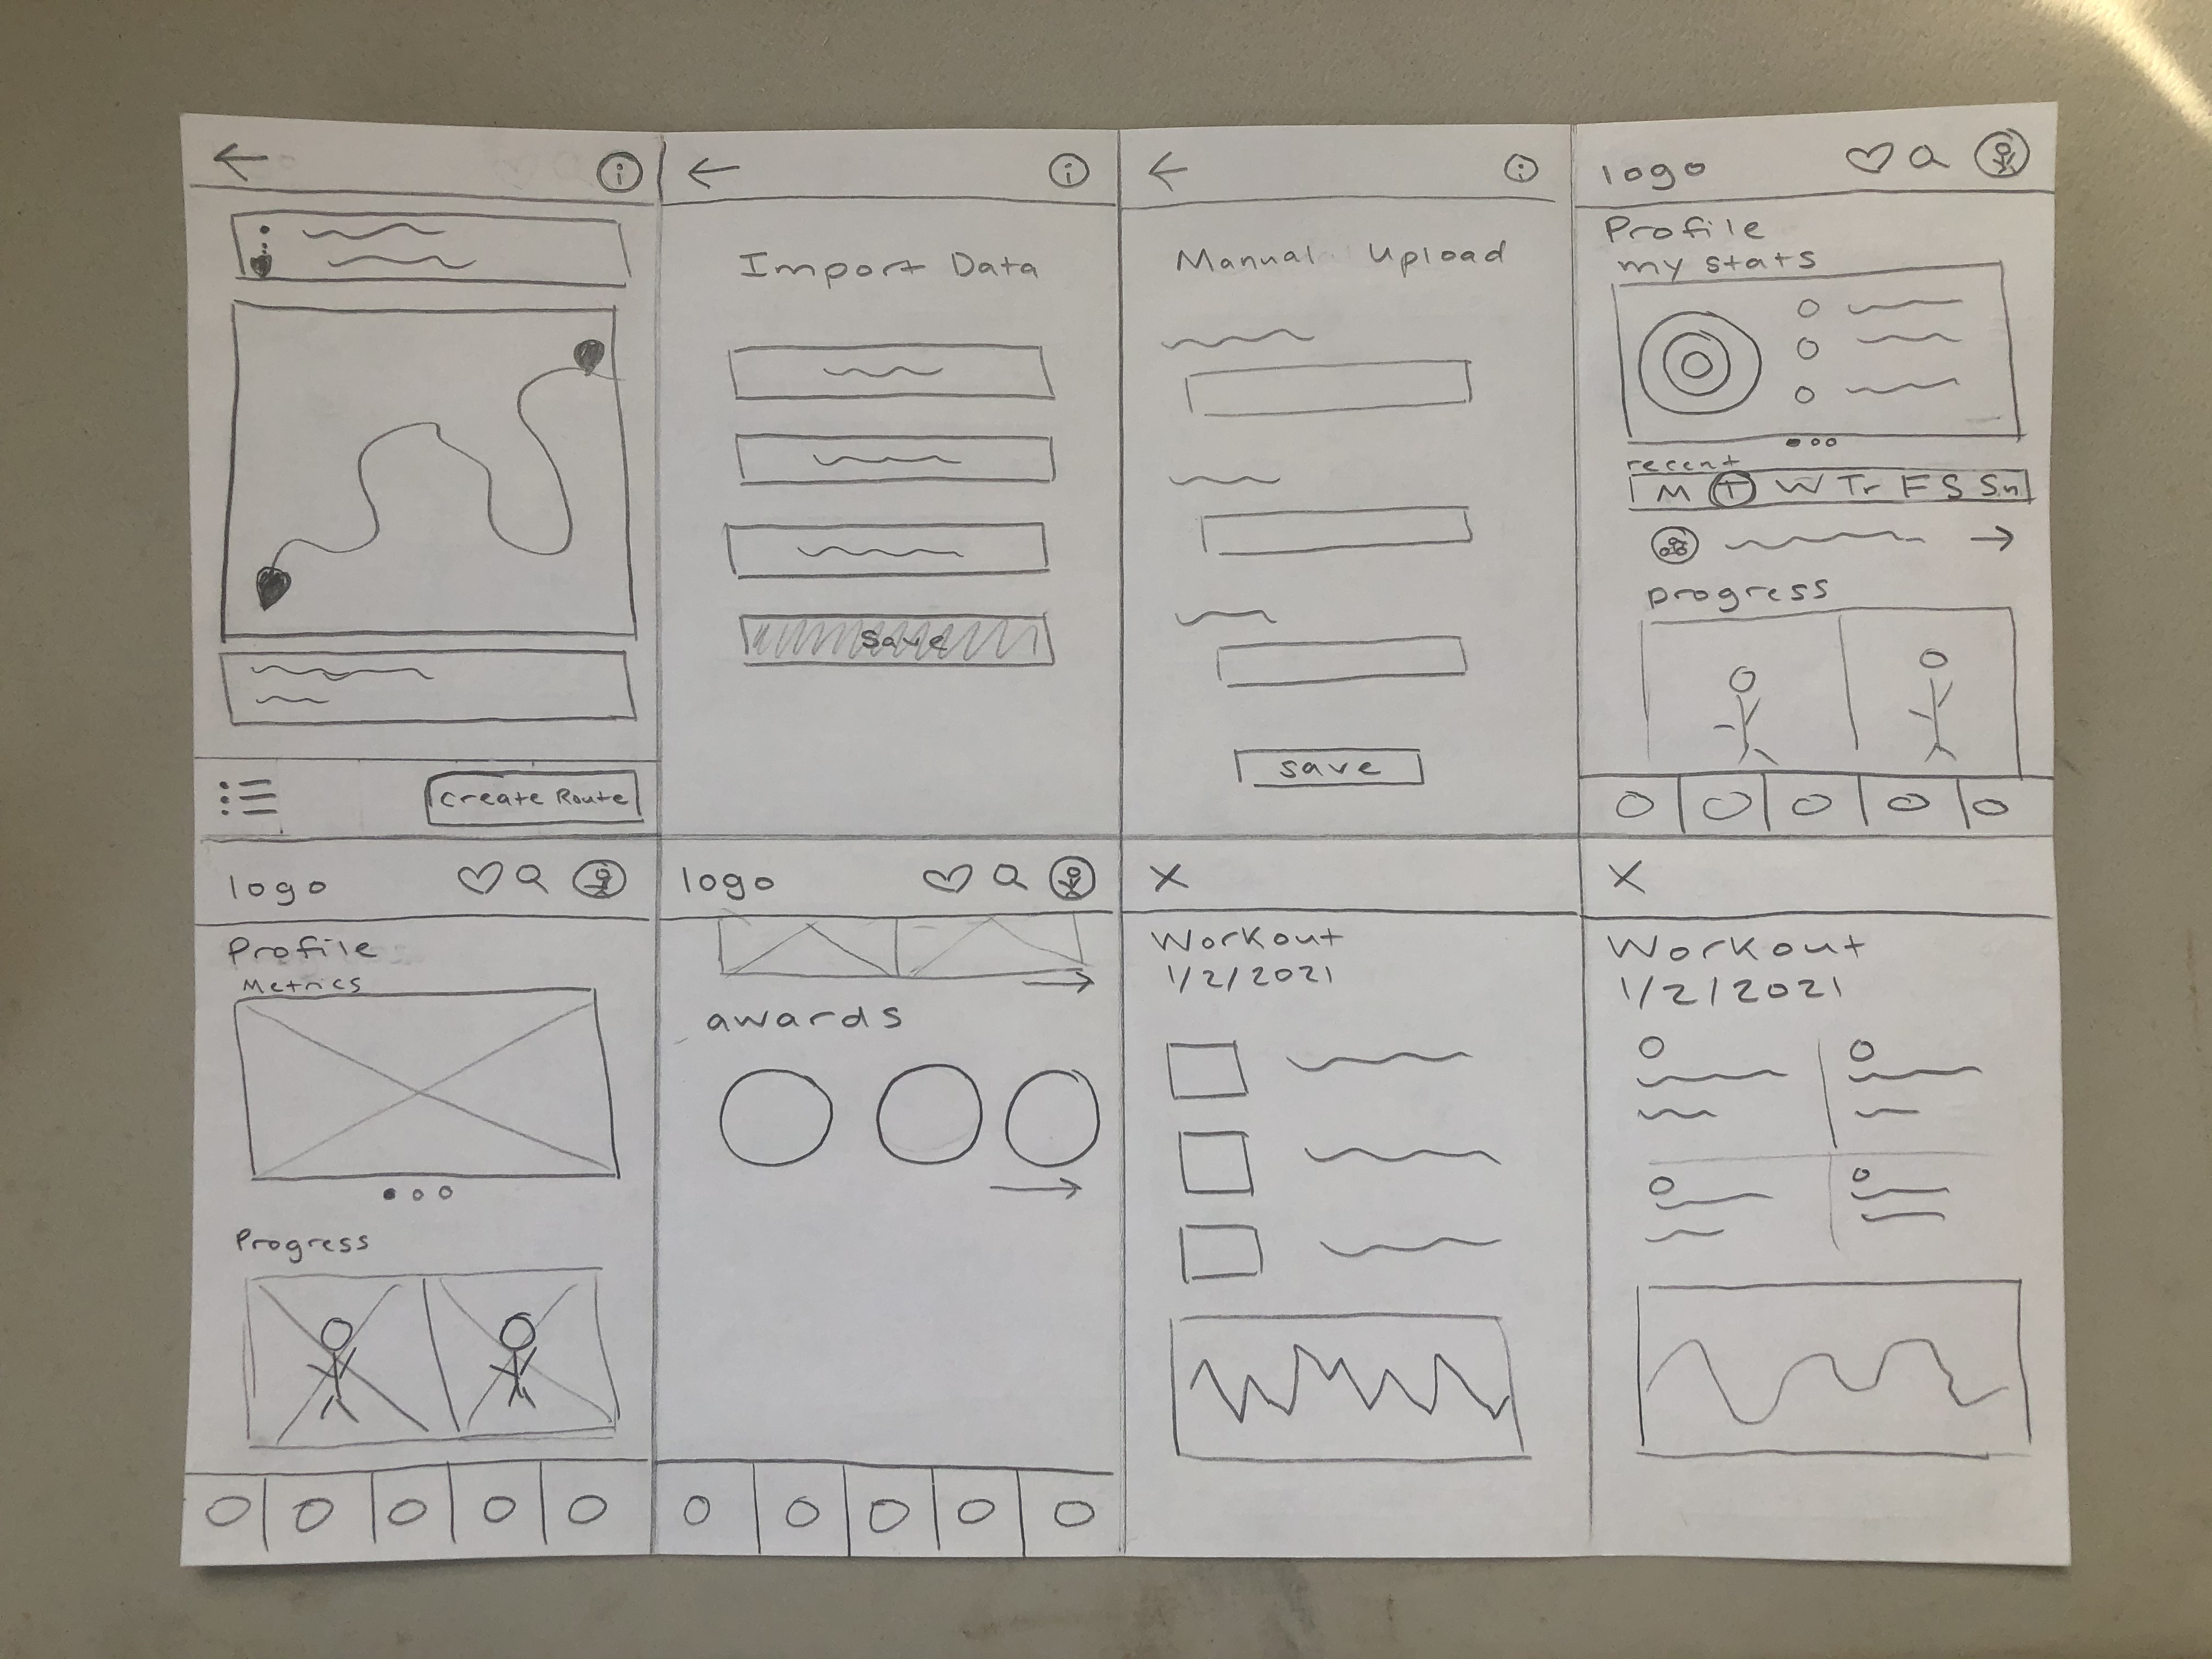 i
Create Route
i
Import Data
Save
i
Manual Upload
save
logo
Profile
my stats
recent
M T W Tr F S Sn
progress
logo
Profile
Metrics
Progress
logo
awards
X
Workout
1/2/2021
X
Workout
1/2/2021